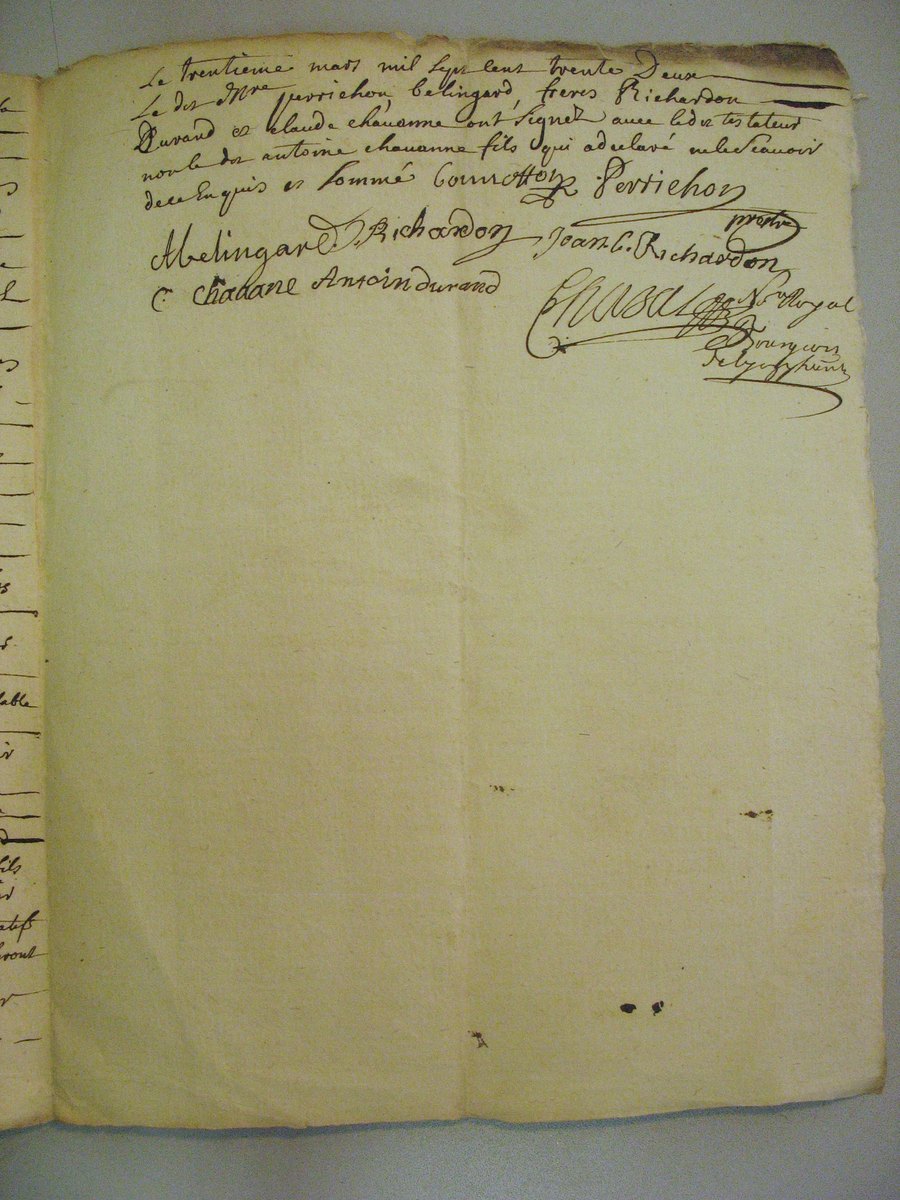 Le trentieme mars mil sept cent trente Deux
Le dit Mre perrichon belingard freres Richardon
Durand et claude chavanne ont signét avec ledit testateur
non le dit antoine chavanne fils qui a declaré ne le scavoir
de ce Enquis et sommé Perrichon
prestre
Abelingard Richardon Jean C. Richardon
C. chavane Antoin durand
Chazal Nore Royal
Bourgeois